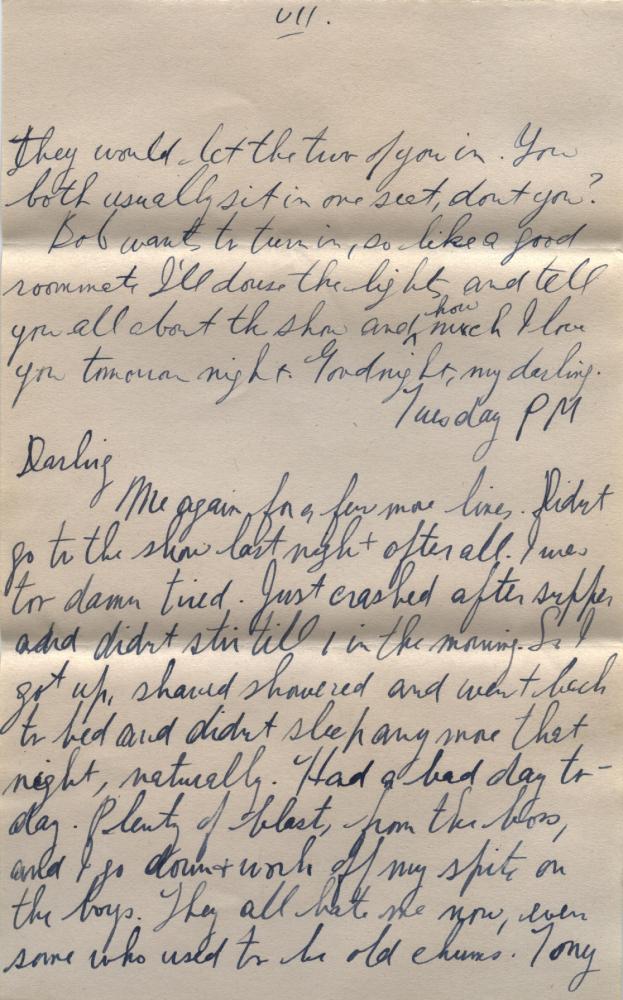 VII.
they would let the two of you in. You
both usually sit in one seat, dont you?
Bob wants to turn in, so like a good
roommate I'll douse the light, and tell
you all about the show and how much I love
you tomorrow night. Goodnight, my darling.
Tuesday PM
Darling
Me again for a few more lines. Didnt
go to the show last night after all. I was
too damn tired. Just crashed after supper
and didnt stir till 1 in the morning. So I
got up, shaved showered and went back
to bed and didnt sleep any more that
night, naturally. Had a bad day to-
day. Plenty of blast, from the boss,
and I go down + work off my spite on
the boys. They all hate me now, even
some who used to be old chums. Tony